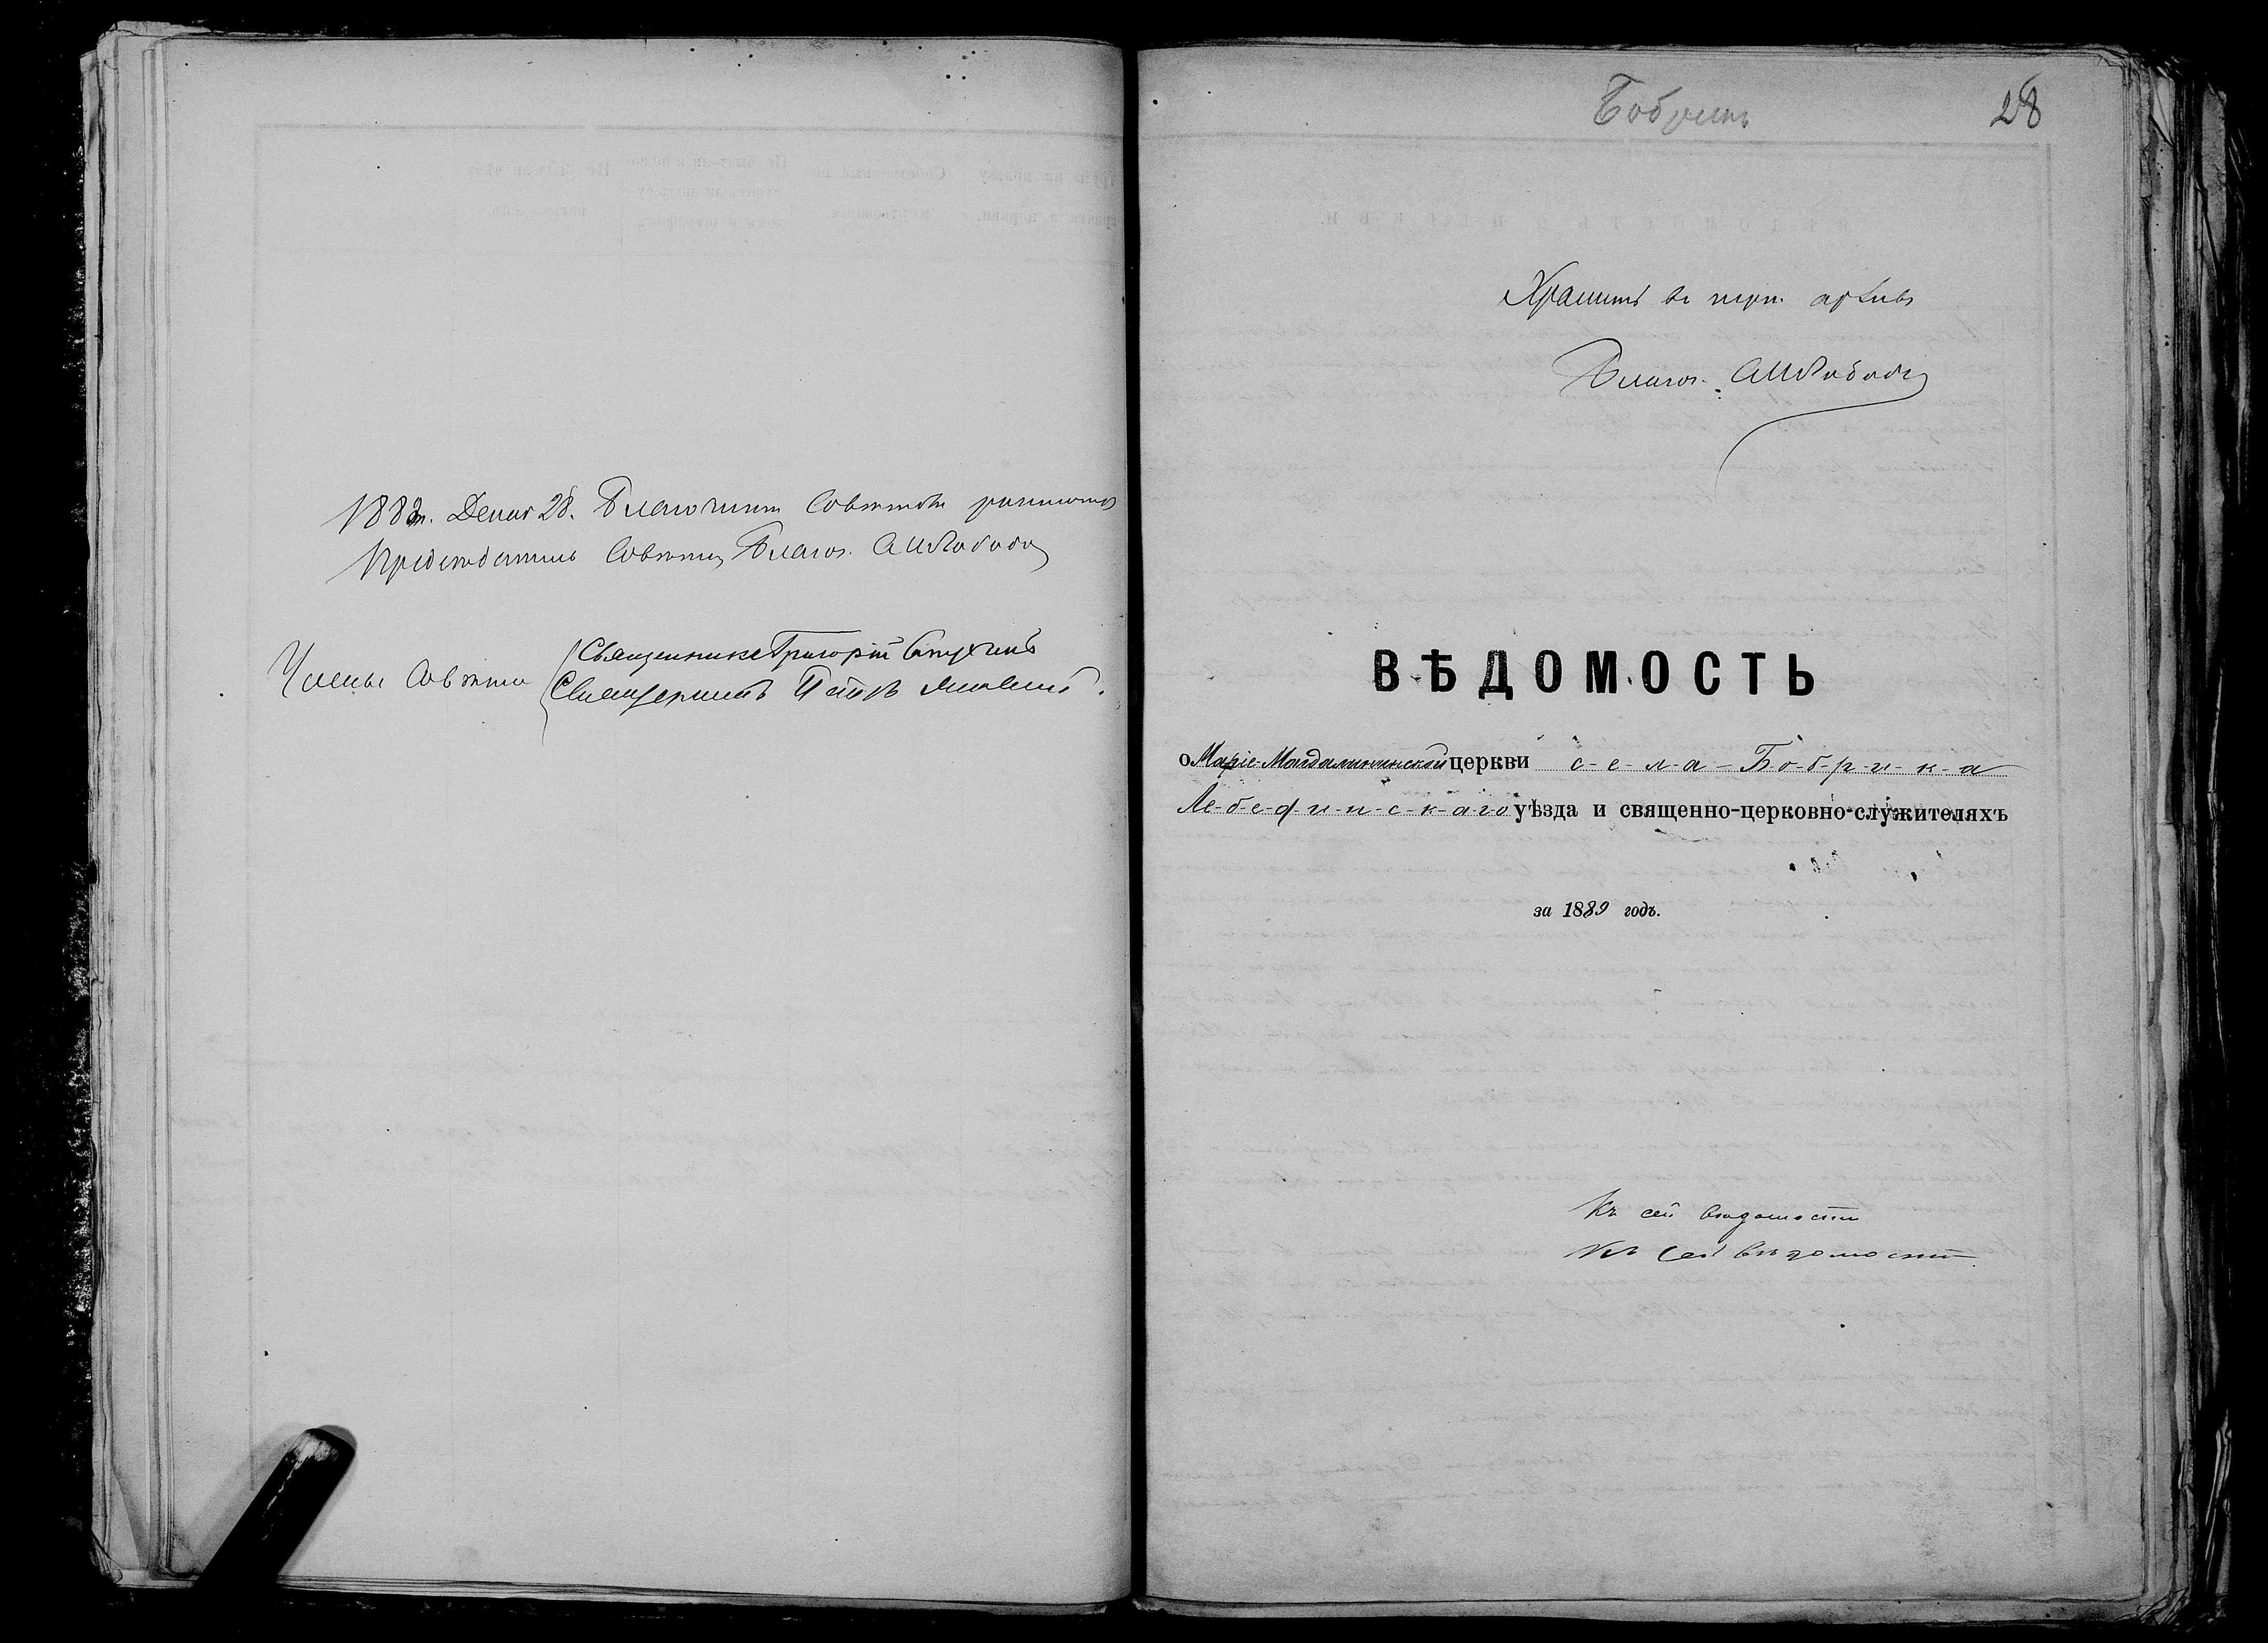 Декаб 28. Благочин Совѣтомъ
Предсѣдатель Совѣта, Благоч.
Члены Совѣта
Священникъ Григорій
Священникъ Петръ
Бобрикъ
28
Хранить въ церк. архивѣ
Благоч.
ВѢДОМОСТЬ
о Маріе-Магдалининской церкви села Бобрика
Лебединскаго уѣзда и священно-церковно-служителяхъ
за 1889 годъ.
Къ сей вѣдомости
Къ сей вѣдомости